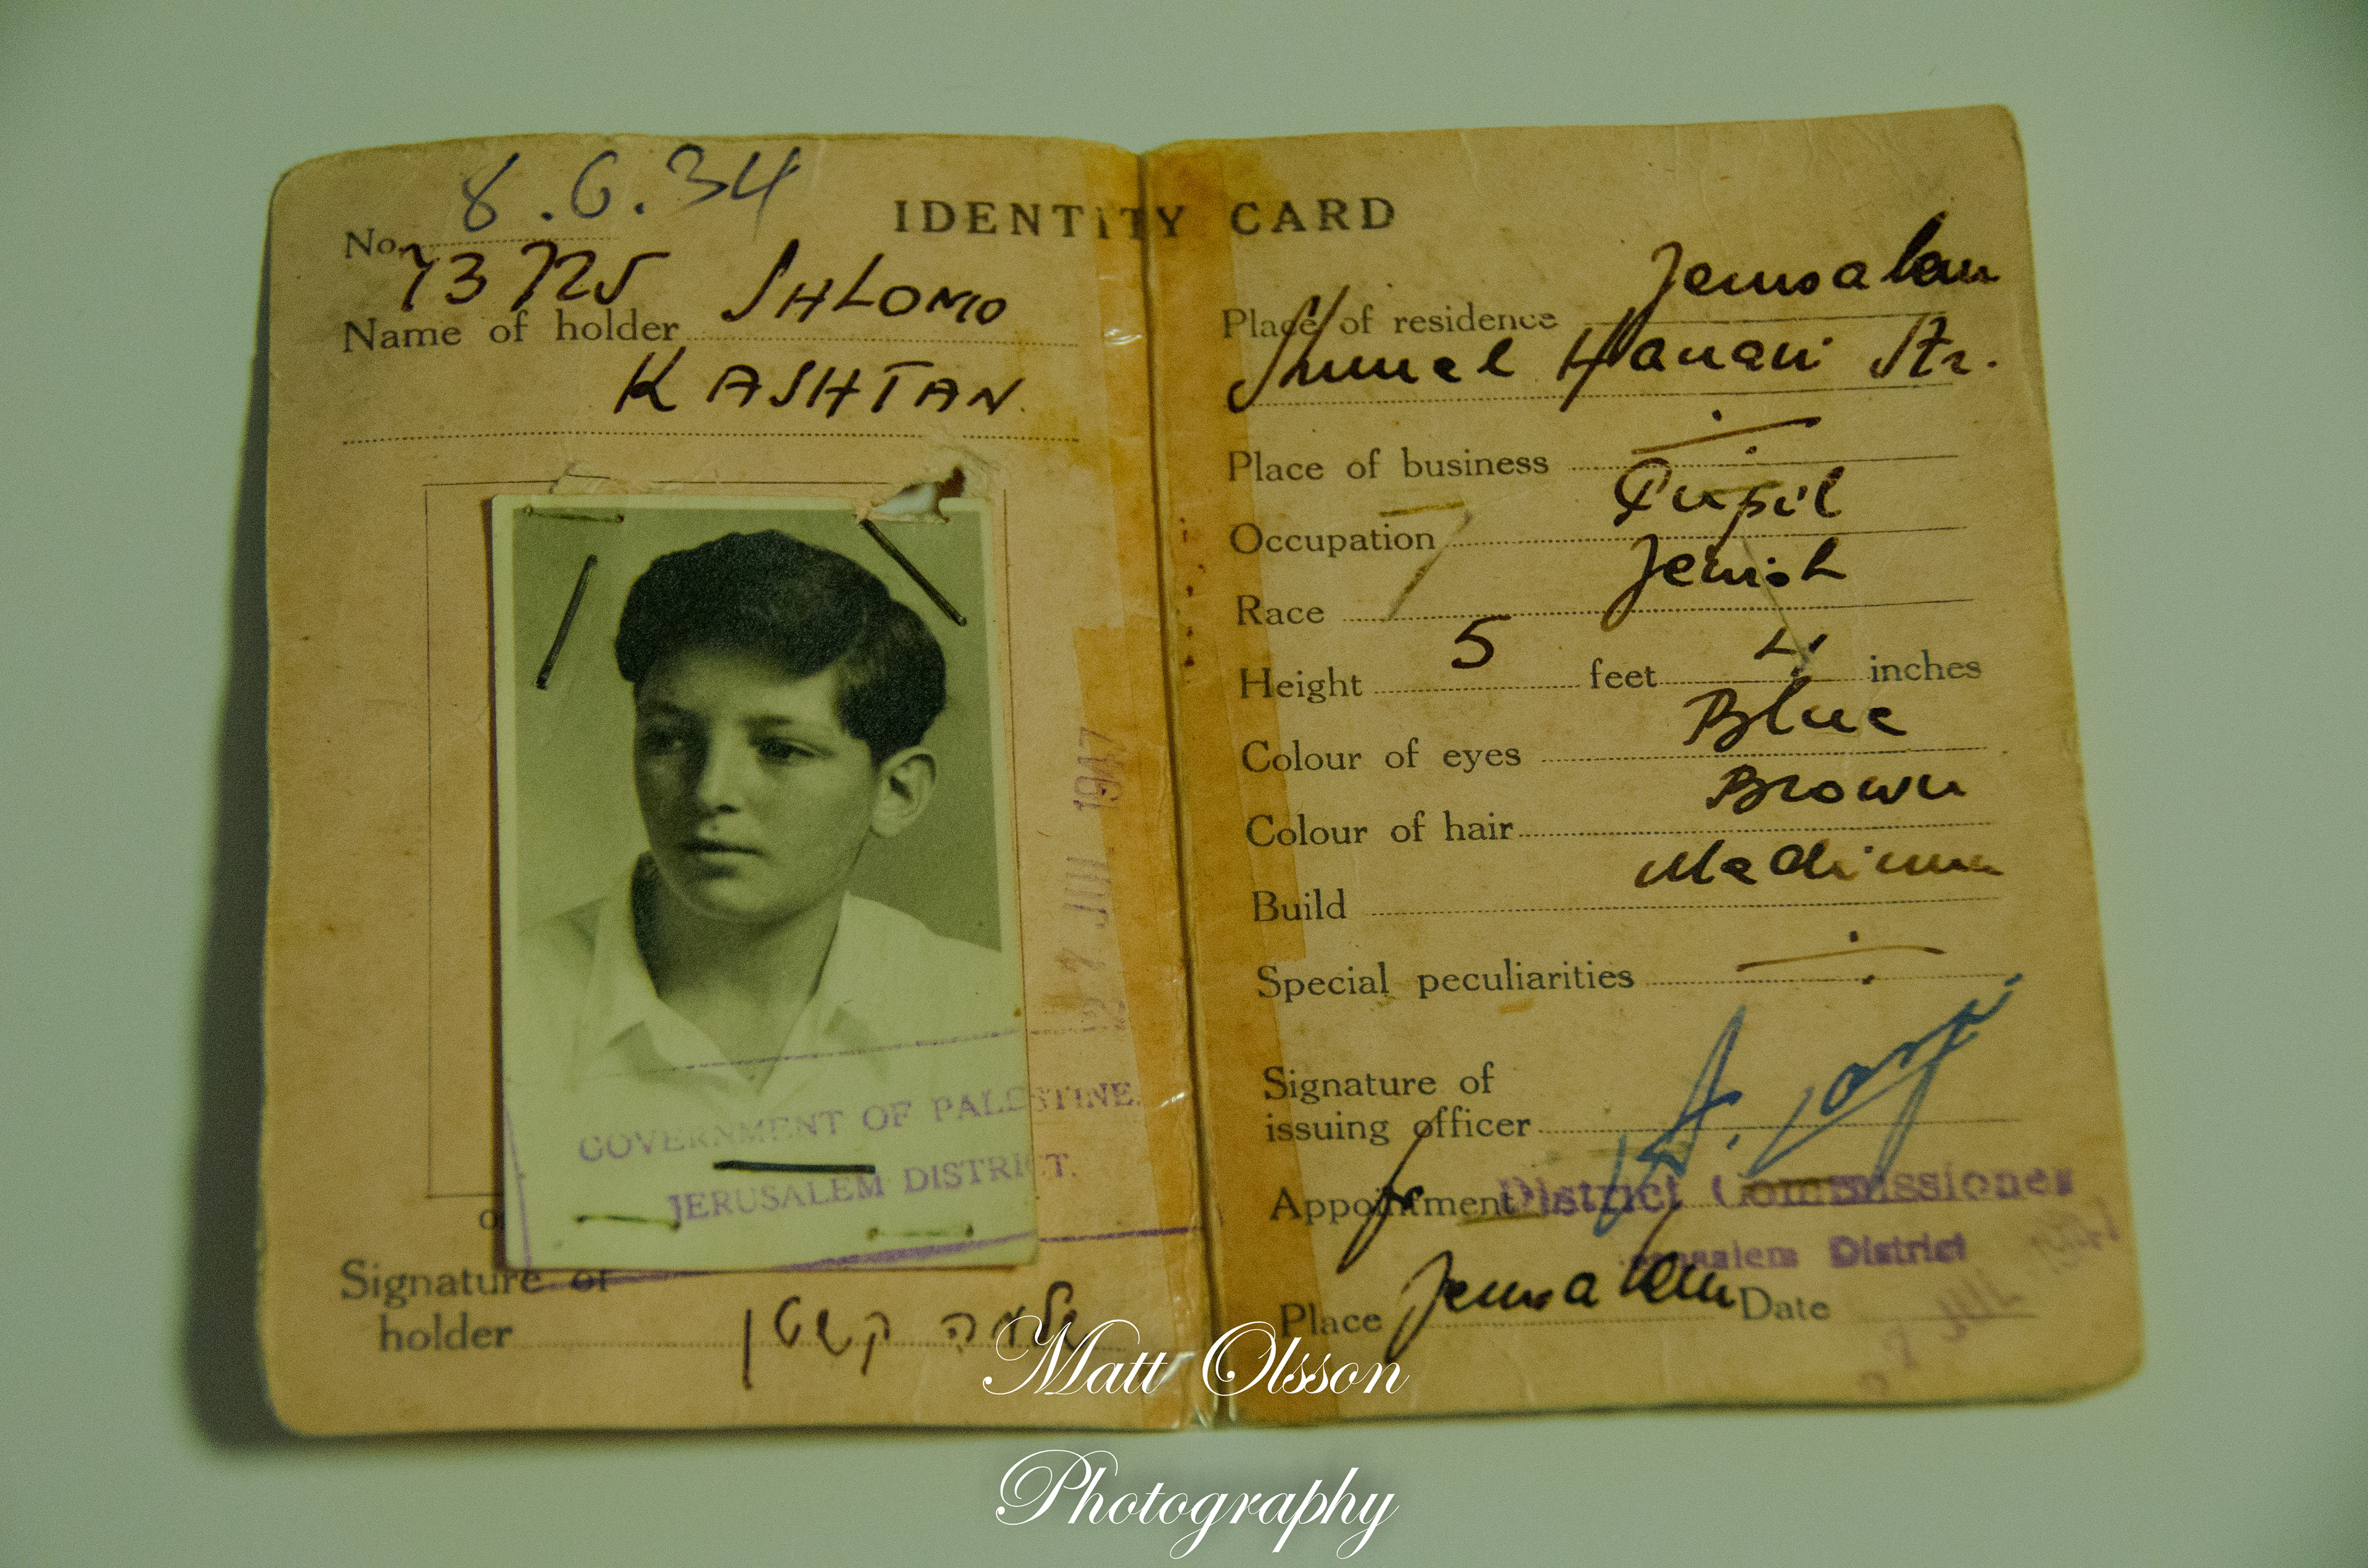 8.6.34
IDENTITY CARD
No. 73725
Name of holder SHLOMO
KASHTAN
27 JUL 1947
GOVERNMENT OF PALESTINE.
JERUSALEM DISTRICT.
Signature of
holder שלמה קשטן
Place of residence Jerusalem
Hanani Str.
Place of business
Occupation Pupil
Race Jewish
Height 5 feet 4 inches
Colour of eyes Blue
Colour of hair Brown
Build Medium
Special peculiarities
Signature of
issuing officer
Appointment District Commissioner
Jerusalem District
Place Jerusalem Date
Matt Olsson
Photography